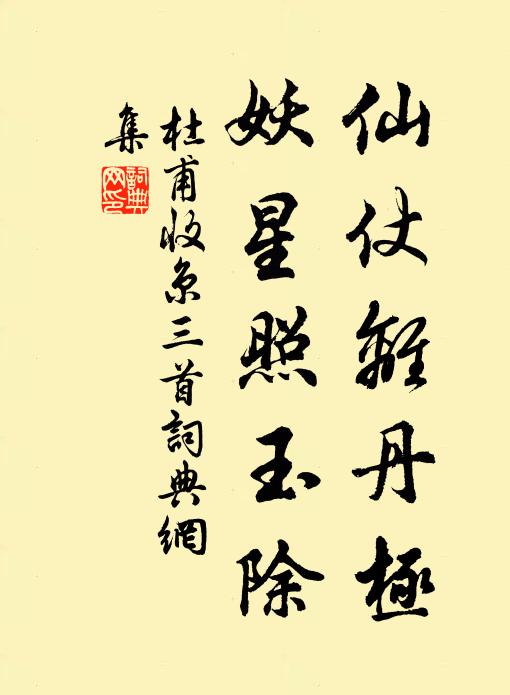 仙仗離丹極
妖星照玉除
杜甫收京三首詞典網
集
詞典
网印